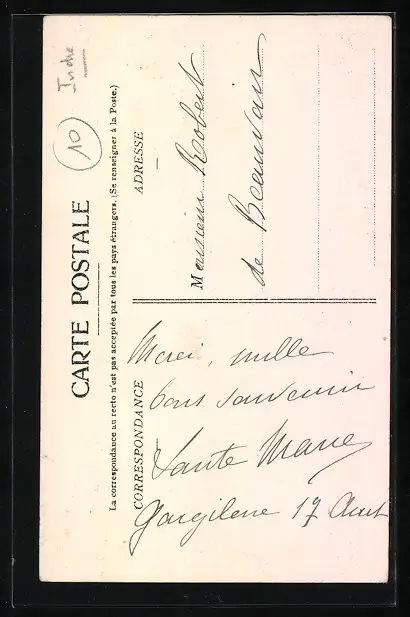 Indre
10
CARTE POSTALE
La correspondance au recto n'est pas acceptée par tous les pays étrangers. (Se renseigner à la Poste.)
CORRESPONDANCE
ADRESSE
Merci, mille
bons souvenirs
Tante Marie
Gargilesse 17 Aout
Monsieur Robert
de Beauvais